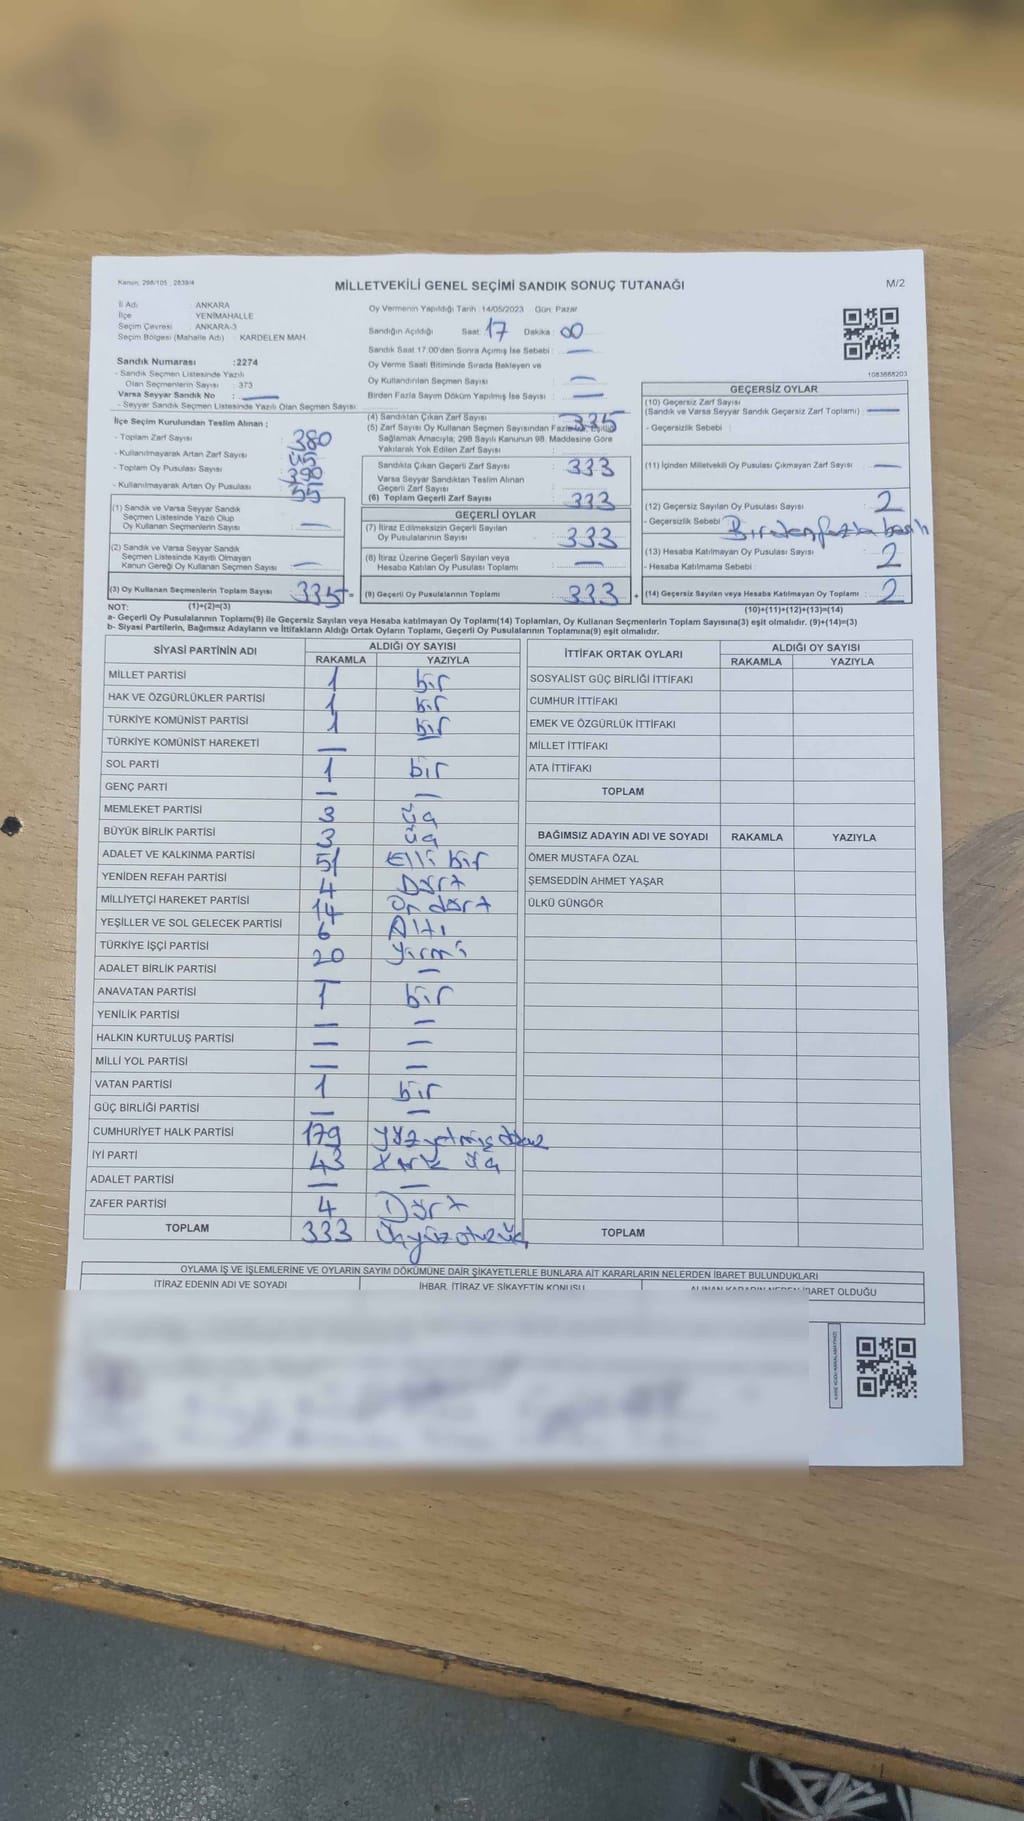 Kanun, 298/105 , 2839/4
MİLLETVEKİLİ GENEL SEÇİMİ SANDIK SONUÇ TUTANAĞI
M/2
İl Adı : ANKARA
İlçe : YENİMAHALLE
Seçim Çevresi : ANKARA-3
Seçim Bölgesi (Mahalle Adı) : KARDELEN MAH.
Sandık Numarası :2274
- Sandık Seçmen Listesinde Yazılı
Olan Seçmenlerin Sayısı : 373
Varsa Seyyar Sandık No : —
- Seyyar Sandık Seçmen Listesinde Yazılı Olan Seçmen Sayısı :
Oy Vermenin Yapıldığı Tarih :14/05/2023 Gün: Pazar
Sandığın Açıldığı Saat: 17 Dakika : 00
Sandık Saat 17.00'den Sonra Açımış İse Sebebi : —
Oy Verme Saati Bitiminde Sırada Bekleyen ve
Oy Kullandırılan Seçmen Sayısı : —
Birden Fazla Sayım Döküm Yapılmış İse Sayısı : —
1083668203
İlçe Seçim Kurulundan Teslim Alınan ;
- Toplam Zarf Sayısı : 380
- Kullanılmayarak Artan Zarf Sayısı : 45
- Toplam Oy Pusulası Sayısı : 390
- Kullanılmayarak Artan Oy Pusulası : 55
(1) Sandık ve Varsa Seyyar Sandık
Seçmen Listesinde Yazılı Olup
Oy Kullanan Seçmenlerin Sayısı : —
(2) Sandık ve Varsa Seyyar Sandık
Seçmen Listesinde Kayıtlı Olmayan
Kanun Gereği Oy Kullanan Seçmen Sayısı : —
(3) Oy Kullanan Seçmenlerin Toplam Sayısı : 335 =
(1)+(2)=(3)
(4) Sandıktan Çıkan Zarf Sayısı : 335
(5) Zarf Sayısı Oy Kullanan Seçmen Sayısından Fazla İse, Eşitliği
Sağlamak Amacıyla; 298 Sayılı Kanunun 98. Maddesine Göre
Yakılarak Yok Edilen Zarf Sayısı :
Sandıkta Çıkan Geçerli Zarf Sayısı : 333
Varsa Seyyar Sandıktan Teslim Alınan
Geçerli Zarf Sayısı :
(6) Toplam Geçerli Zarf Sayısı : 333
GEÇERLİ OYLAR
(7) İtiraz Edilmeksizin Geçerli Sayılan
Oy Pusulalarının Sayısı : 333
(8) İtiraz Üzerine Geçerli Sayılan veya
Hesaba Katılan Oy Pusulası Toplamı : —
(9) Geçerli Oy Pusulalarının Toplamı : 333 +
GEÇERSİZ OYLAR
(10) Geçersiz Zarf Sayısı
(Sandık ve Varsa Seyyar Sandık Geçersiz Zarf Toplamı) : —
- Geçersizlik Sebebi :
(11) İçinden Milletvekili Oy Pusulası Çıkmayan Zarf Sayısı : —
(12) Geçersiz Sayılan Oy Pusulası Sayısı : 2
- Geçersizlik Sebebi : Birden fazla
(13) Hesaba Katılmayan Oy Pusulası Sayısı : 2
- Hesaba Katılmama Sebebi :
(14) Geçersiz Sayılan veya Hesaba Katılmayan Oy Toplamı : 2
(10)+(11)+(12)+(13)=(14)
NOT:
a- Geçerli Oy Pusulalarının Toplamı(9) ile Geçersiz Sayılan veya Hesaba katılmayan Oy Toplamı(14) Toplamları, Oy Kullanan Seçmenlerin Toplam Sayısına(3) eşit olmalıdır. (9)+(14)=(3)
b- Siyasi Partilerin, Bağımsız Adayların ve İttifakların Aldığı Ortak Oyların Toplamı, Geçerli Oy Pusulalarının Toplamına(9) eşit olmalıdır.
SİYASİ PARTİNİN ADI ALDIĞI OY SAYISI
RAKAMLA YAZIYLA
MİLLET PARTİSİ 1 bir
HAK VE ÖZGÜRLÜKLER PARTİSİ 1 bir
TÜRKİYE KOMÜNİST PARTİSİ 1 bir
TÜRKİYE KOMÜNİST HAREKETİ —
SOL PARTİ 1 bir
GENÇ PARTİ — —
MEMLEKET PARTİSİ 3 üç
BÜYÜK BİRLİK PARTİSİ 3 üç
ADALET VE KALKINMA PARTİSİ 51 Elli bir
YENİDEN REFAH PARTİSİ 4 Dört
MİLLİYETÇİ HAREKET PARTİSİ 14 On dört
YEŞİLLER VE SOL GELECEK PARTİSİ 6 Altı
TÜRKİYE İŞÇİ PARTİSİ 20 Yirmi
ADALET BİRLİK PARTİSİ —
ANAVATAN PARTİSİ 1 bir
YENİLİK PARTİSİ — —
HALKIN KURTULUŞ PARTİSİ — —
MİLLİ YOL PARTİSİ — —
VATAN PARTİSİ 1 bir
GÜÇ BİRLİĞİ PARTİSİ — —
CUMHURİYET HALK PARTİSİ 179 yüzyetmişdokuz
İYİ PARTİ 43 Kırk üç
ADALET PARTİSİ — —
ZAFER PARTİSİ 4 Dört
TOPLAM 333 üçyüzotuzüç
İTTİFAK ORTAK OYLARI ALDIĞI OY SAYISI
RAKAMLA YAZIYLA
SOSYALİST GÜÇ BİRLİĞİ İTTİFAKI
CUMHUR İTTİFAKI
EMEK VE ÖZGÜRLÜK İTTİFAKI
MİLLET İTTİFAKI
ATA İTTİFAKI
TOPLAM
BAĞIMSIZ ADAYIN ADI VE SOYADI RAKAMLA YAZIYLA
ÖMER MUSTAFA ÖZAL
ŞEMSEDDİN AHMET YAŞAR
ÜLKÜ GÜNGÖR
TOPLAM
OYLAMA İŞ VE İŞLEMLERİNE VE OYLARIN SAYIM DÖKÜMÜNE DAİR ŞİKAYETLERLE BUNLARA AİT KARARLARIN NELERDEN İBARET BULUNDUKLARI
İTİRAZ EDENİN ADI VE SOYADI İHBAR, İTİRAZ VE ŞİKAYETİN KONUSU ALINAN KARARIN NEDEN İBARET OLDUĞU